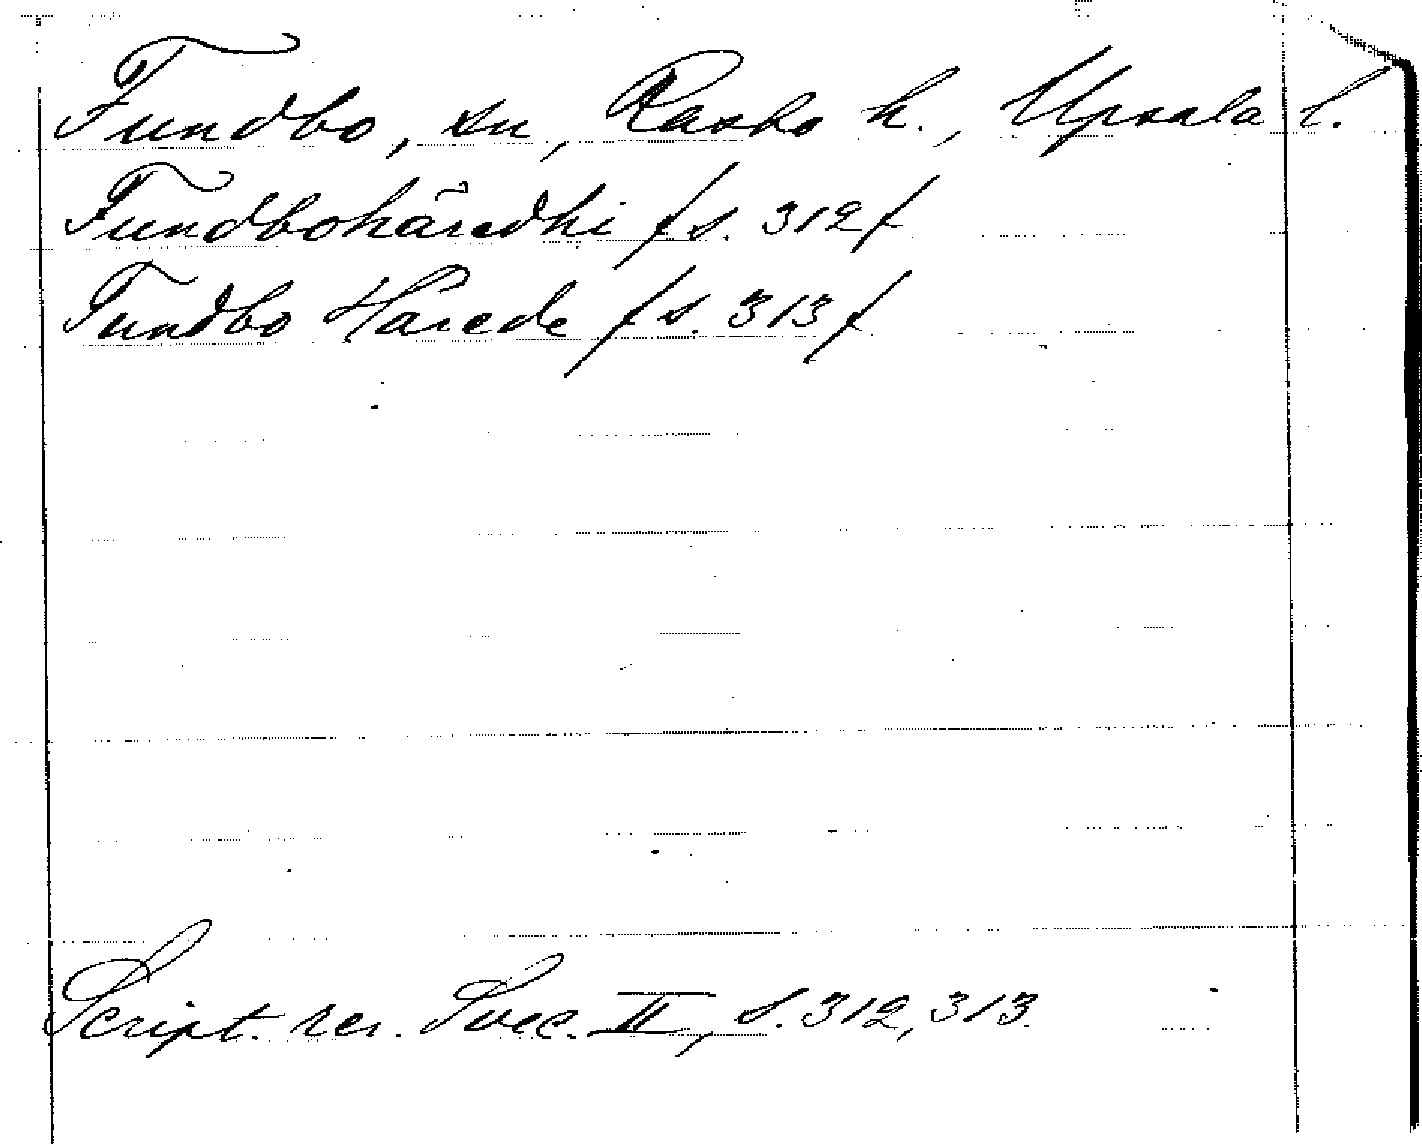 Fundbo, sn, Rasbo h., Upsala l.
Fundbohäredhi /s. 312/
Fundbo Härede /s. 313/
Script. rer. Svec. II, s. 312, 313.